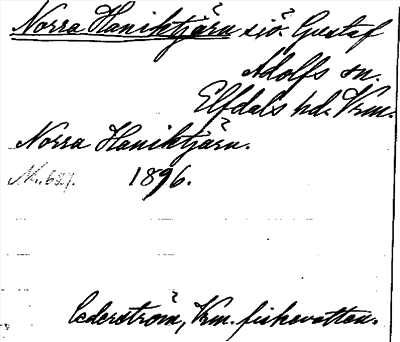 Norra Haniktjärn sjö. Gustaf
Adolfs sn.
Elfdals hd. Vrm.
Norra Haniktjärn.
1896.
Cederström, Vrm. fiskevatten.